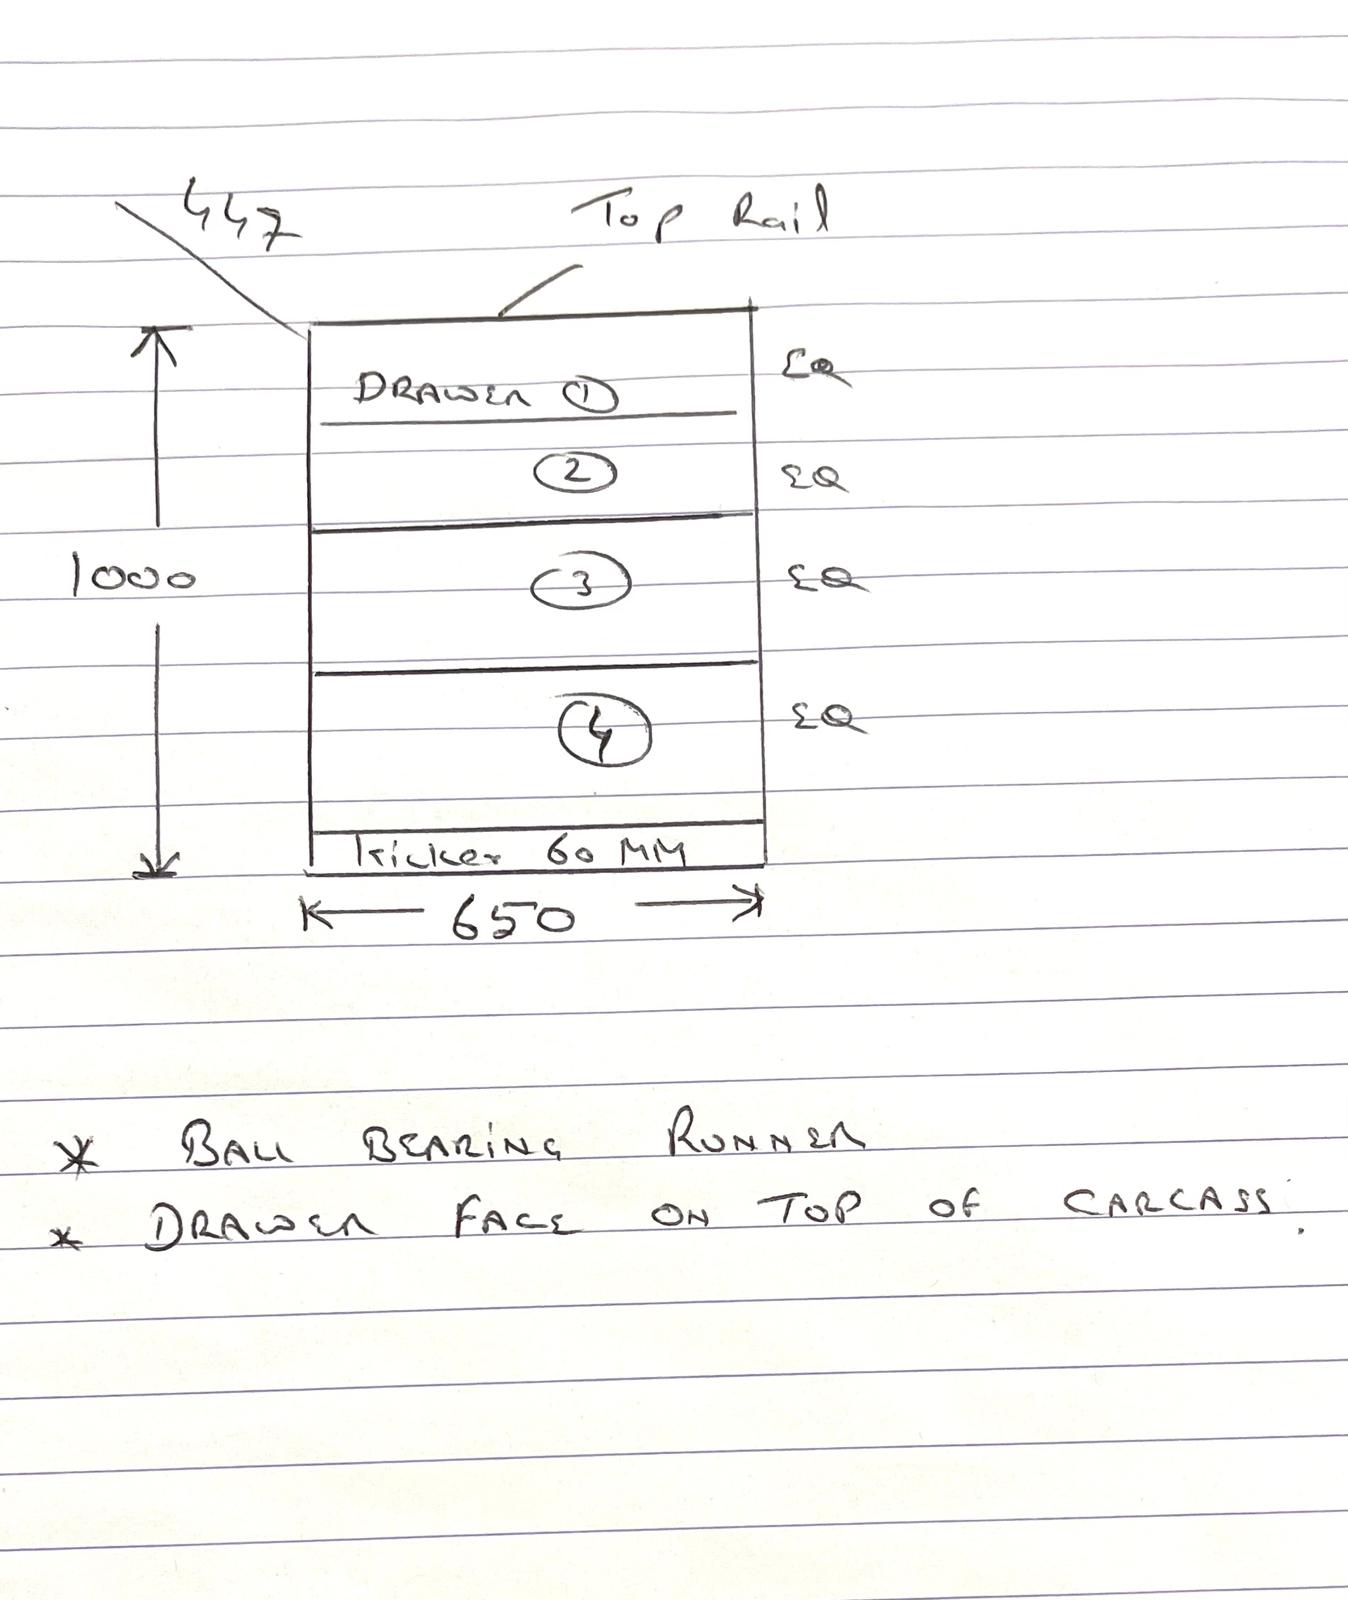 447
Top Rail
DRAWER 1
EQ
2
EQ
1000
3
EQ
4
EQ
Kicker 60 MM
650
* BALL BEARING RUNNER
* DRAWER FACE ON TOP OF CARCASS.